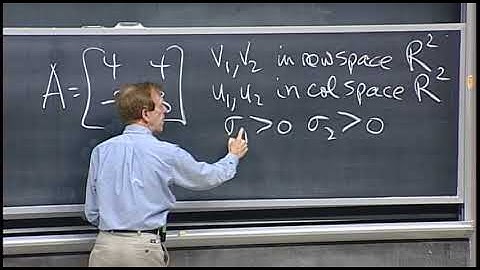 A = [4 4
v₁, v₂ in row space R²
u₁, u₂ in col space R²
σ > 0 σ₂ > 0